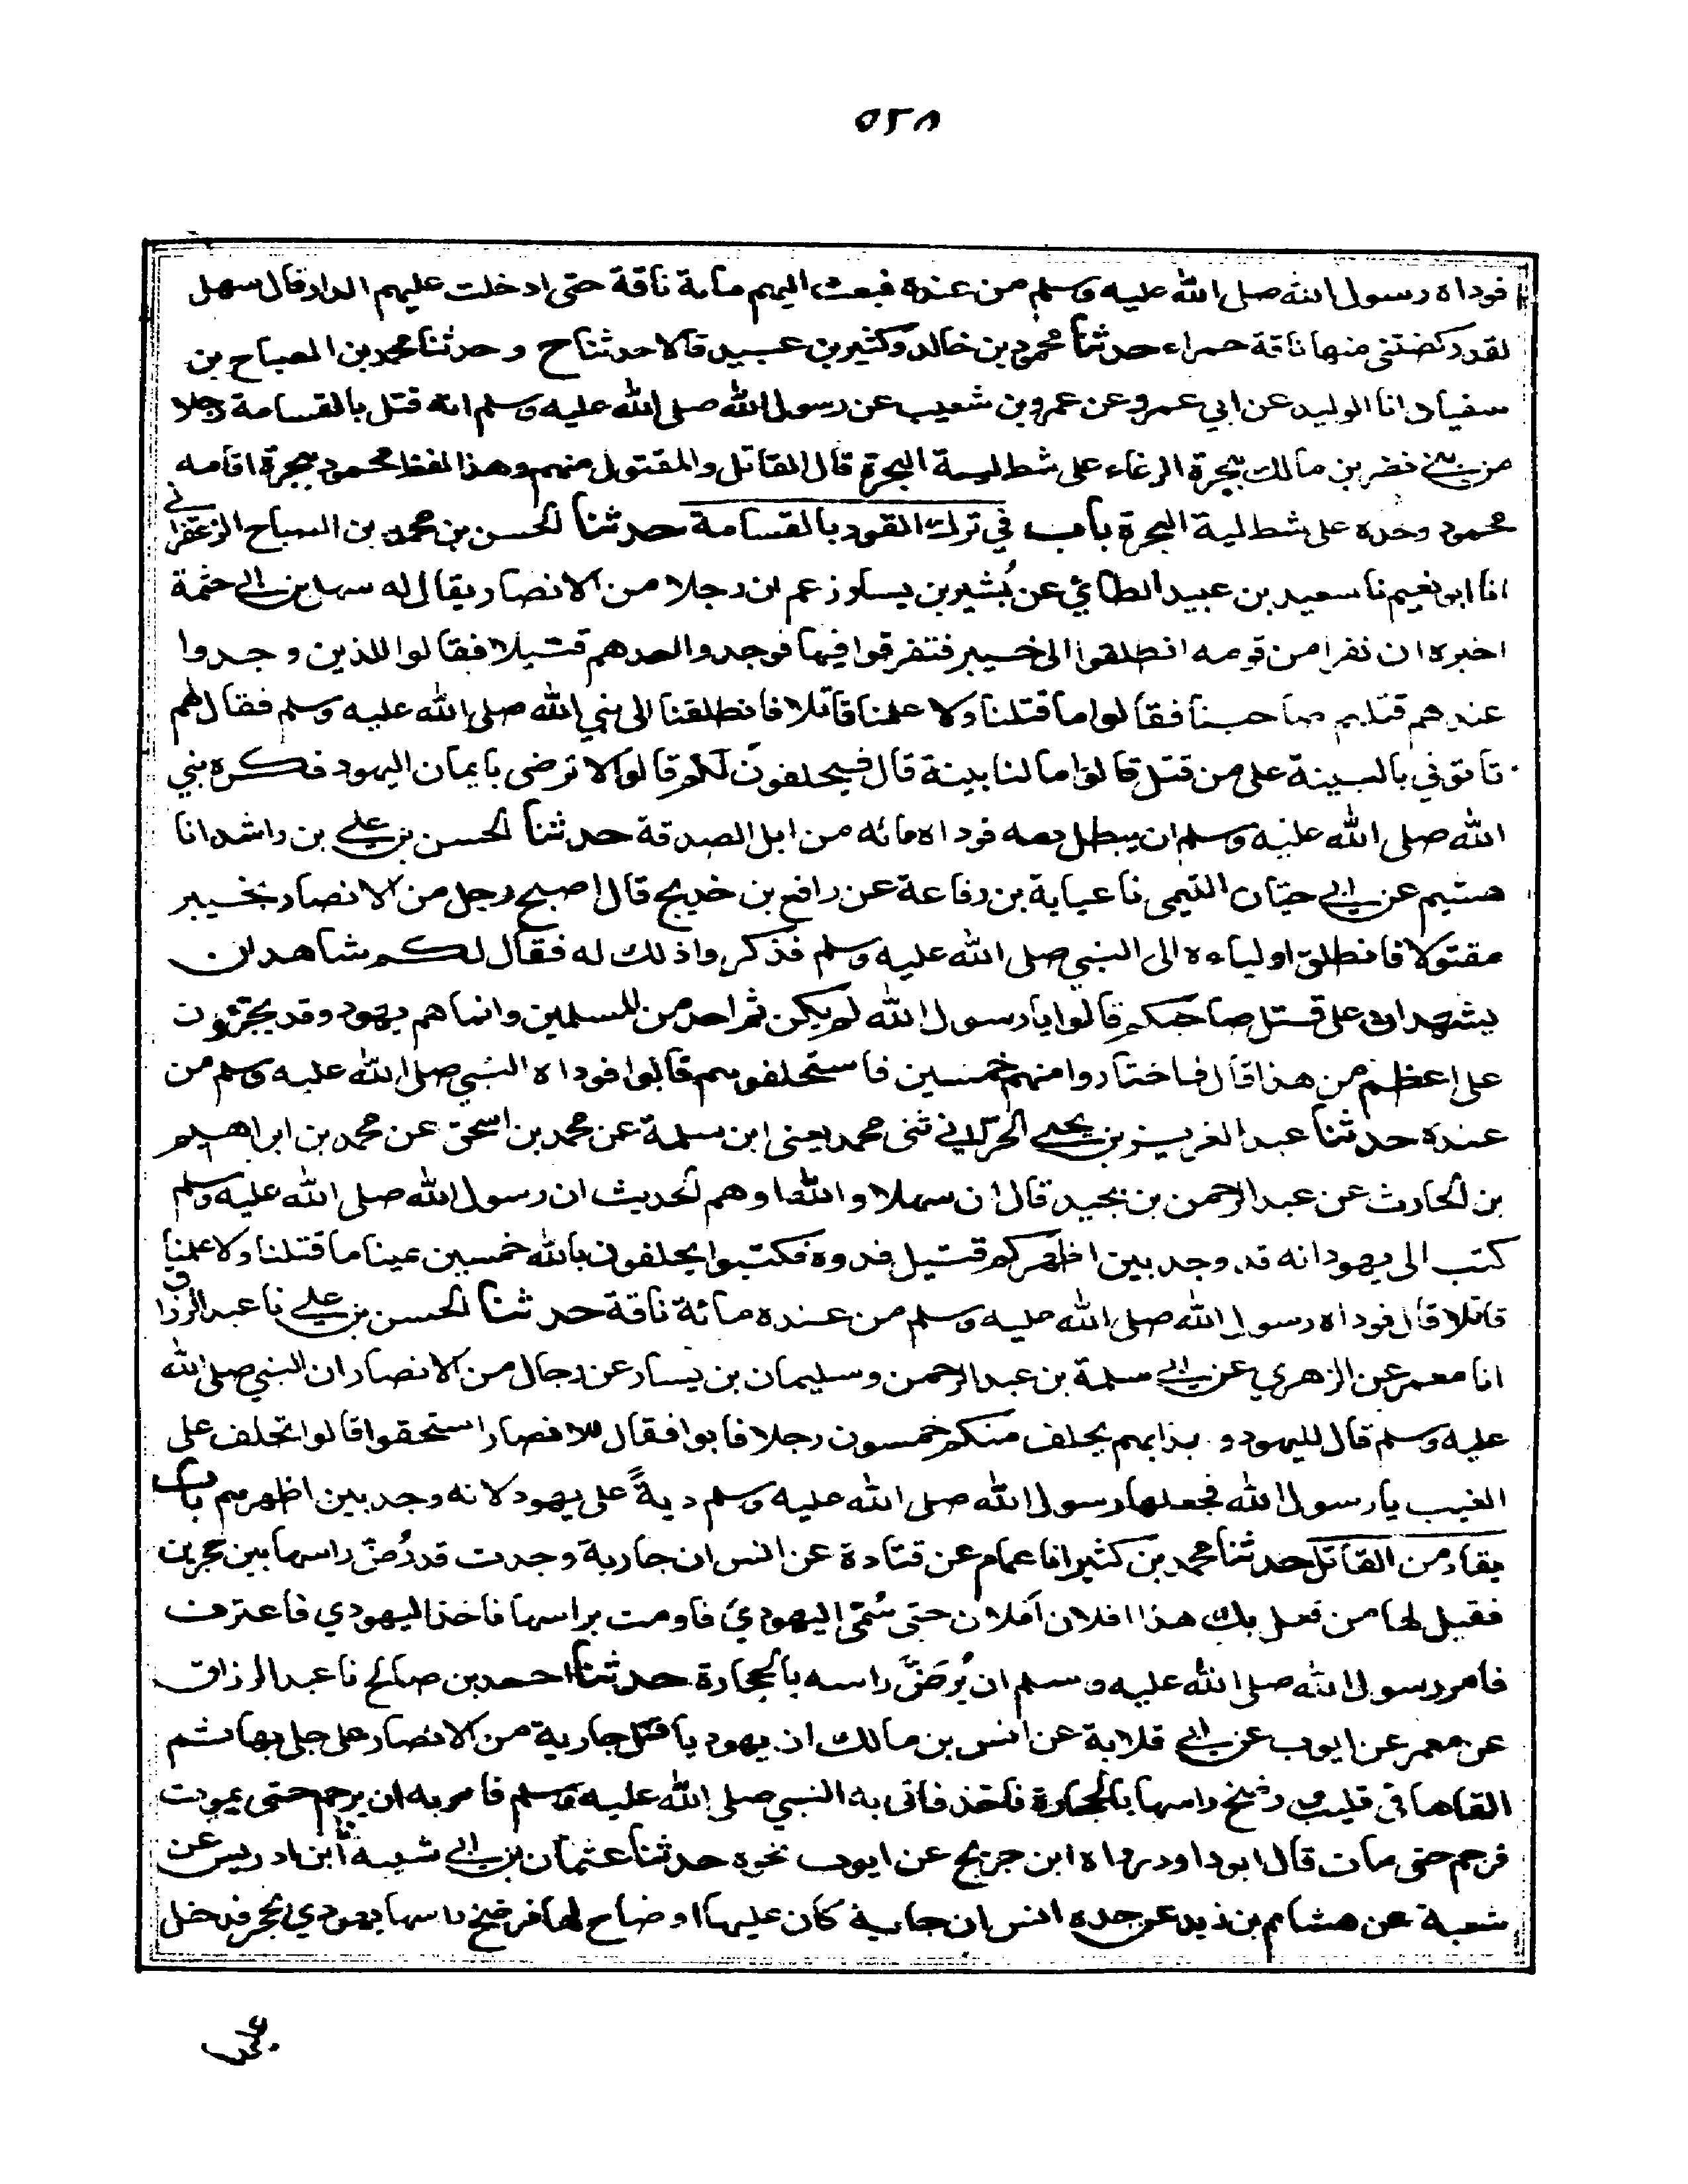 ٥٢٨
فوداه رسول الله صلى الله عليه وسلم من عنده فبعث اليهم مامة ناقة حتى ادخلت عليهم الدار قال سهل
لقد ركضتني منها ناقة حمراء حدثنا محمود بن خالد وكثير بن عبيد قالا حدثنا ح وحدثنا محمد بن الصباح بن
سفيان انا الوليد عن ابي عمرو عن عمرو بن شعيب عن رسول الله صلى الله عليه وسلم انه قتل بالقسامة رجلا
من بني نضر بن مالك ببحرة الرغاء على شط لية البحرة قال القاتل والمقتول منهم وهذا لفظ محمود ببحرة اقامه
محمود وحده على شط لية البحرة باب في ترك القود بالقسامة حدثنا الحسن بن محمد بن الصباح الزعفراني
انا ابو نعيم نا سعيد بن عبيد الطائي عن بُشير بن يسار زعم ان رجلا من الانصار يقال له سهل بن ابي حثمة
اخبره ان نفرا من قومه انطلقوا الى خيبر فتفرقوا فيها فوجدوا احدهم قتيلا فقالوا للذين وجدوا
عندهم قتلتم صاحبنا فقالوا ما قتلنا ولا علمنا قاتلا فانطلقنا الى نبي الله صلى الله عليه وسلم فقال لهم
تأتوني بالبينة على من قتل قالوا ما لنا بينة قال فيحلفون لكم قالوا لا نرضى بايمان اليهود فكره نبي
الله صلى الله عليه وسلم ان يبطل دمه فوداه مائه من ابل الصدقة حدثنا الحسن بن علي بن راشد انا
هشيم عن ابي حيّان التيمي نا عباية بن رفاعة عن رافع بن خديج قال اصبح رجل من الانصار بخيبر
مقتولا فانطلق اولياءه الى النبي صلى الله عليه وسلم فذكروا ذلك له فقال لكم شاهدان
يشهدان على قتل صاحبكم قالوا يا رسول الله لم يكن ثم احد من المسلمين وانما هم يهود وقد يجترؤن
على اعظم من هذا قال فاختاروا منهم خمسين فاستحلفوهم فابوا فوداه النبي صلى الله عليه وسلم من
عنده حدثنا عبد العزيز بن يحيى الحرّاني ثنى محمد يعنى ابن سلمة عن محمد بن اسحق عن محمد بن ابراهيم
بن الحارث عن عبد الرحمن بن بجيد قال ان سهلا والله اوهم الحديث ان رسول الله صلى الله عليه وسلم
كتب الى يهود انه قد وجد بين اظهركم قتيل فدوه فكتبوا يحلفون بالله خمسين يمينا ما قتلنا ولا علمنا
قاتلا قال فوداه رسول الله صلى الله عليه وسلم من عنده مائة ناقة حدثنا الحسن بن علي نا عبد الرزاق
انا معمر عن الزهري عن ابي سلمة بن عبد الرحمن وسليمان بن يسار عن رجال من الانصار ان النبي صلى الله
عليه وسلم قال لليهود و بدا بهم يحلف منكم خمسون رجلا فابوا فقال للانصار استحقوا قالوا نحلف على
الغيب يا رسول الله فجعلها رسول الله صلى الله عليه وسلم ديةً على يهود لانه وجد بين اظهرهم باب
يقاد من القاتل حدثنا محمد بن كثير انا همام عن قتادة عن انس ان جارية وجدت قد رُضّ راسها بين حجرين
فقيل لها من فعل بك هذا افلان افلان حتى سُمّي اليهودي فاومت براسها فاخذ اليهودي فاعترف
فامر رسول الله صلى الله عليه وسلم ان يُرَضَّ راسه بالحجارة حدثنا احمد بن صالح نا عبد الرزاق
عن معمر عن ايوب عن ابي قلابة عن انس بن مالك ان يهوديا قتل جارية من الانصار على حلي لها ثم
القاها في قليب ورضخ راسها بالحجارة فاخذ فاتى به النبي صلى الله عليه وسلم فامر به ان يرجم حتى يموت
فرجم حتى مات قال ابو داود رواه ابن جريج عن ايوب نحوه حدثنا عثمان بن ابي شيبة نا ابن ادريس عن
شعبة عن هشام بن زيد عن جده انس ان جارية كان عليها اوضاح لها فرضخ راسها يهودي بحجر فدخل